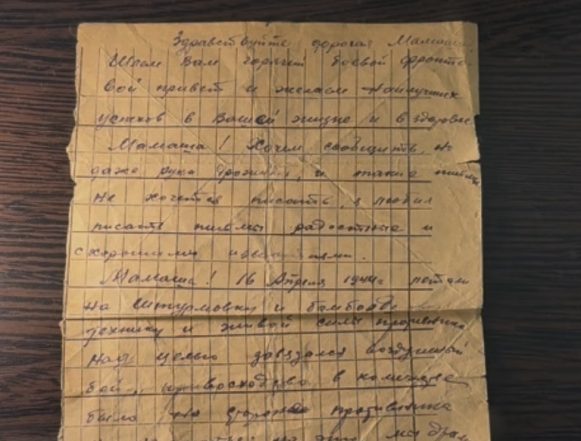 Здравствуйте дорогая Мамаша
Шлем Вам горячий боевой фронто-
вой привет и желаем наилучших
успехов в Вашей жизни и в здоровье
Мамаша! Хотим сообщить, но
даже рука дрожит, и такие письма
не хочется писать, я любил
писать письма радостные и
с хорошими известиями.
Мамаша! 16 Апреля 1944 г летали
на штурмовку и бомбовые
техники и живой силы противника
над целью завязался воздушный
бой, превосходство в количестве
было на стороне противника